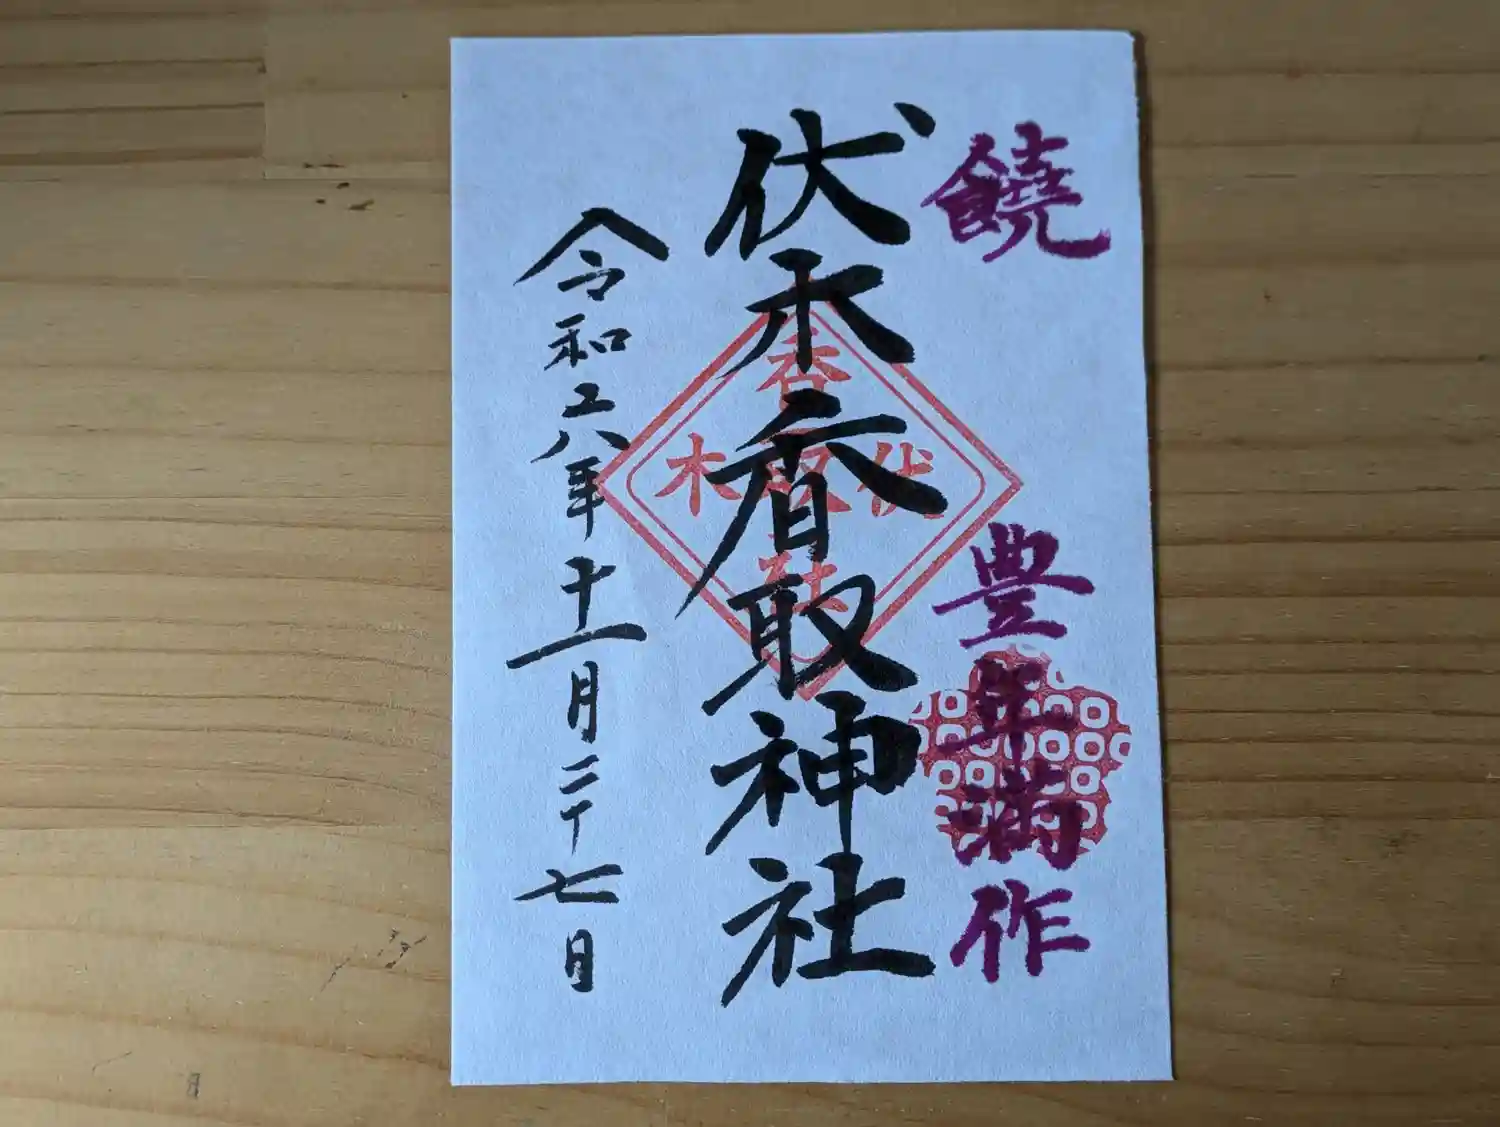 饒
豊年満作
伏木香取神社
令和六年十一月二十七日
香取神社
伏木